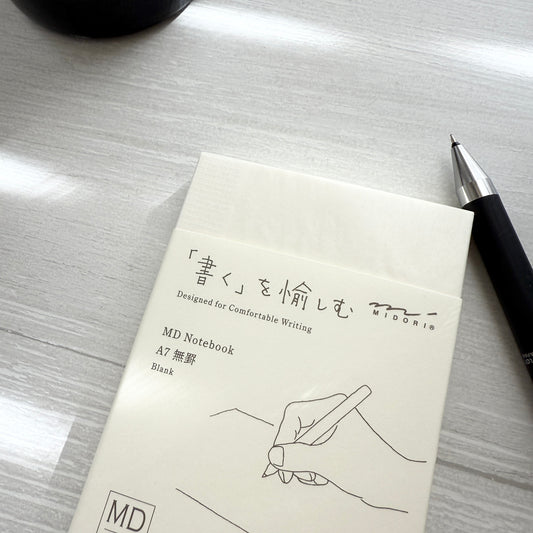 「書く」を愉しむ
Designed for Comfortable Writing
MIDORI®
MD Notebook
A7 無罫
Blank
MD